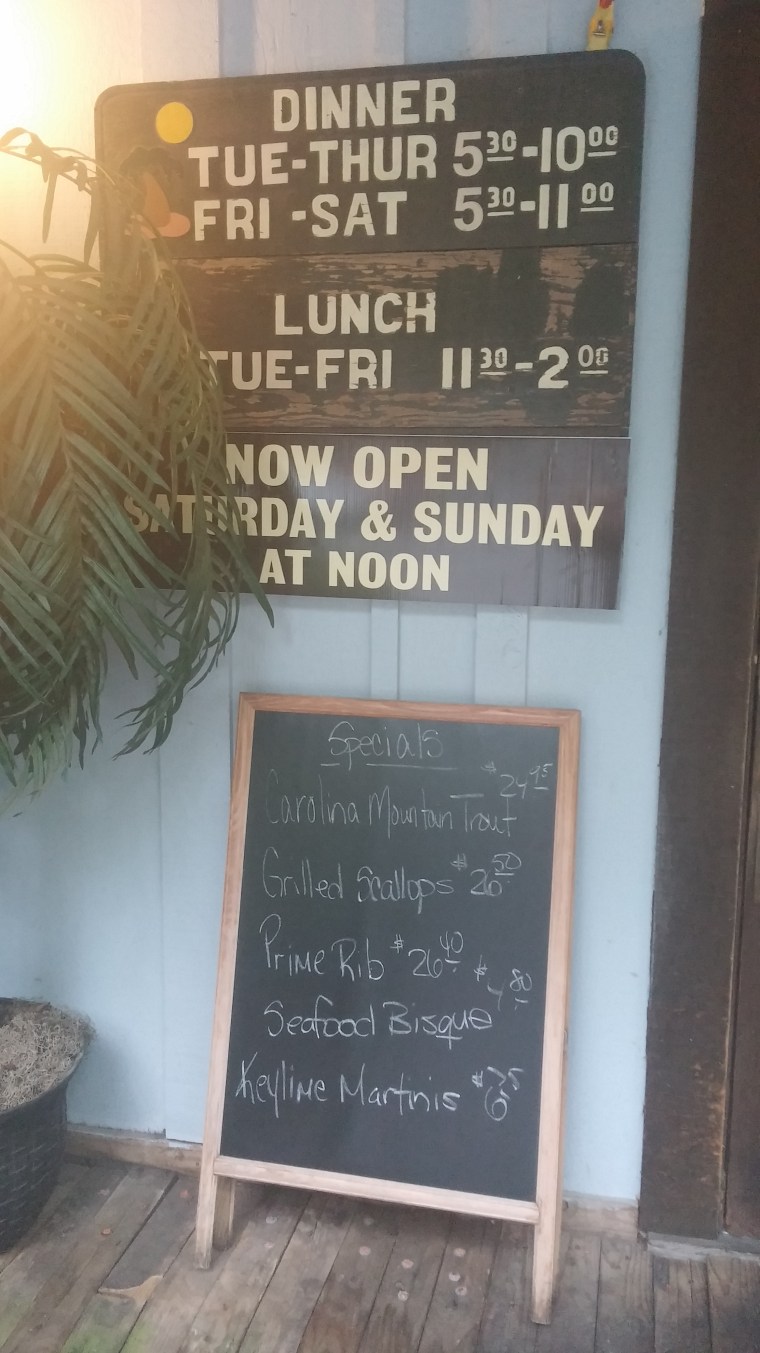 DINNER
TUE-THUR 5³⁰-10⁰⁰
FRI-SAT 5³⁰-11⁰⁰
LUNCH
TUE-FRI 11³⁰-2⁰⁰
NOW OPEN
SATURDAY & SUNDAY
AT NOON
Specials
$24⁹⁵
Carolina Mountain Trout
Grilled Scallops $26⁵⁰
Prime Rib $26⁴⁰
$4⁸⁰
Seafood Bisque
Keylime Martinis $6⁷⁵